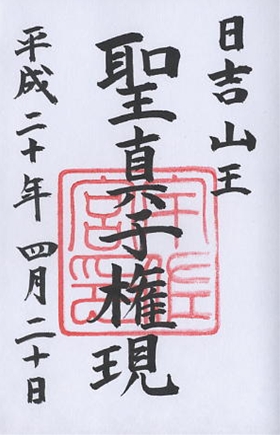 日吉山王
聖真子権現
平成二十年 四月二十日